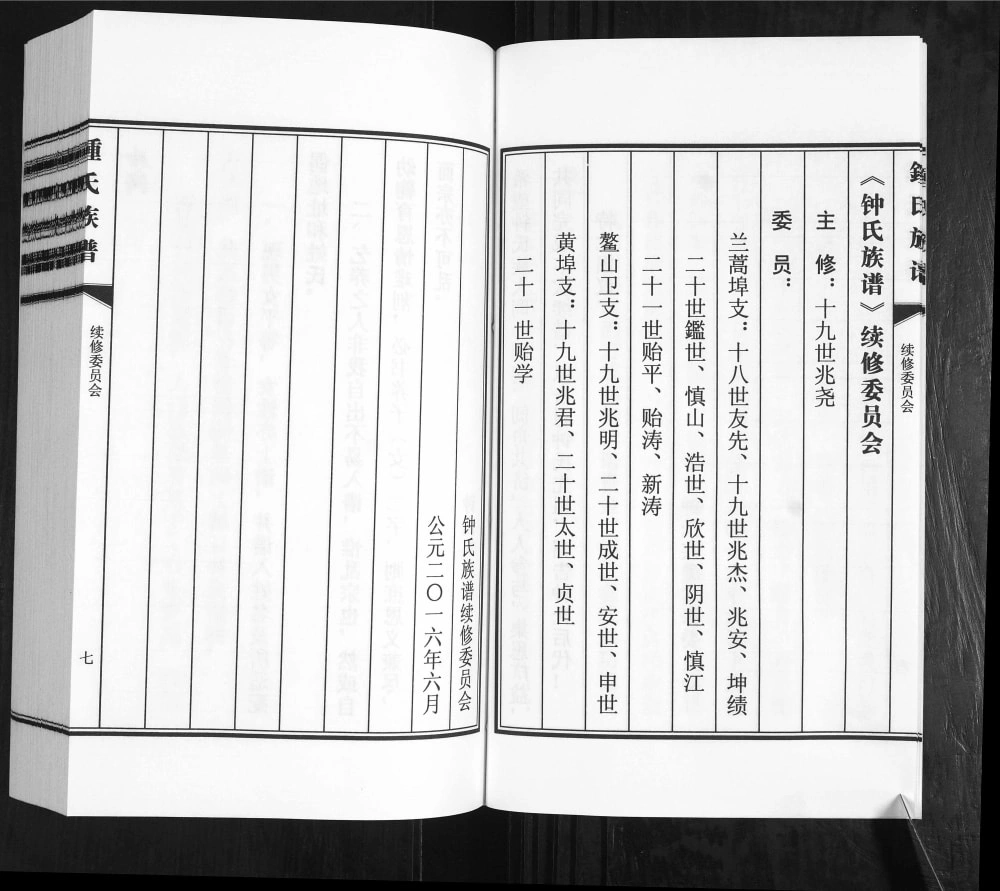 鍾氏族谱
续修委员会
《钟氏族谱》续修委员会
主修：十九世兆尧
委员：
兰蒿埠支：十八世友先、十九世兆杰、兆安、坤绩
二十世鑑世、慎山、浩世、欣世、阴世、慎江
二十一世贻平、贻涛、新涛
鳌山卫支：十九世兆明、二十世成世、安世、申世
黄埠支：十九世兆君、二十世太世、贞世
二十一世贻学
钟氏族谱续修委员会
公元二〇一六年六月
鍾氏族谱
续修委员会
七